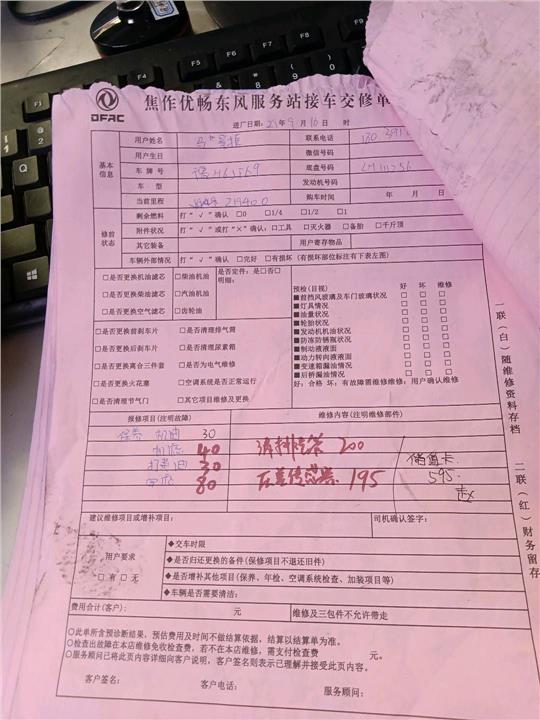 DFAC
焦作优畅东风服务站接车交修单
进厂日期:21年9月10日 时
基本信息
用户姓名 联系电话
用户生日 微信号码
车牌号 底盘号码
车型 发动机号码
当前里程 219400 购车时间 年 月 日
修前状态
剩余燃料 打“√”确认 □0 □1/4 □1/2 □1
附件状况 打“√”或打“×”确认:□工具 □灭火器 □备胎 □千斤顶
其它装备 用户寄存物品
车辆外部情况 打“√”确认 □完好 □有损坏(有损部位标注有下表左图)
□是否更换机油滤芯 □柴油机油 是否定件:是□否□
□是否更换柴油滤芯 □汽油机油 明细:
□是否更换空气滤芯 □齿轮油
□是否更换前刹车片 □是否清理排气筒
□是否更换后刹车片 □是否清理尿素箱
□是否更换离合三件套 □是否为电气维修
□是否更换火花塞 □空调系统是否正常运行
□是否清理节气门 □其它项目维修及更换
预检(目视) 好 坏 维修
■首挡风玻璃及车门玻璃状况 □ □ □
■灯具情况 □ □ □
■油量状况 □ □ □
■轮胎状况 □ □ □
■发动机机油状况 □ □ □
■防冻防锈瓶状况 □ □ □
■制动液液面 □ □ □
■动力转向液液面 □ □ □
■变速箱漏油情况 □ □ □
■后桥漏油情况 □ □ □
好:合格 坏:有故障需维修维修:用户确认维修
报修项目(注明故障) 维修内容(注明维修部件)
保养 机油 30
机滤 40 清排气管 200 储值卡
打黄油 30 压差传感器 195 595.
80 赵
建议维修项目或增补项目: 司机确认签字:
用户要求
□有 □无
◆交车时限
◆是否归还更换的备件(保修项目不退还旧件)
◆是否增补其他项目(保养、年检、空调系统检查、加装项目等)
◆车辆是否需要清洁:
费用合计(客户): 元 维修及三包件不允许带走
○此单所含预诊断结果,预估费用及时间不做结算依据,结算以结算单为准。
○检查出故障在本店维修免收检查费,若不在本店维修,需支付检查费 元。
○服务顾问已将此页内容详细向客户说明,客户签名则表示已理解并接受此页内容。
客户签名: 客户电话: 服务顾问:
一联(白)随维修资料存档
二联(红)财务留存